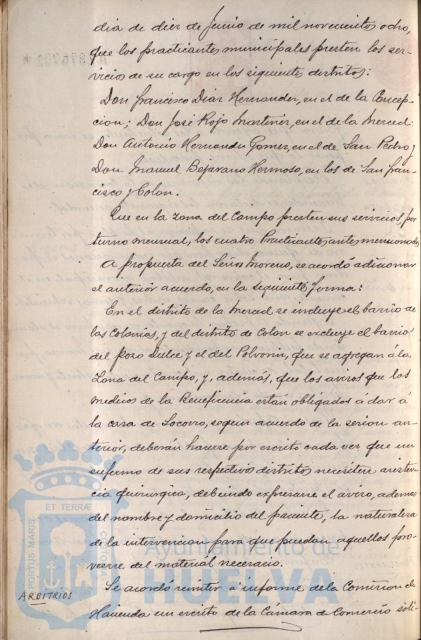 dia de diez de Junio de mil novecientos ocho,
que los practicantes municipales presten los ser-
vicios de su cargo en los siguientes distritos:
Don Francisco Diaz Hernandez, en el de la Concep-
cion; Don José Rojo Martinez, en el de la Merced;
Don Antonio Hernandez Gomez, en el de San Pedro y
Don Manuel Bejarano Hermoso, en los de San Fran-
cisco y Colon.
Que en la zona del Campo presten sus servicios por
turno mensual, los cuatro Practicantes antes mencionados.
A propuesta del Señor Moreno, se acordó adicionar
el anterior acuerdo, en la siguiente forma:
En el distrito de la Merced se incluye el barrio de
las Colonias, y del distrito de Colon se excluye el barrio
del Pozo Dulce y el del Polvorin, que se agregan á la
Zona del Campo, y, además, que los avisos que los
medicos de la Beneficencia están obligados á dar á
la casa de Socorro, segun acuerdo de la sesion an-
terior, deberán hacerse por escrito cada vez que un
enfermo de sus respectivos distritos necesiten asisten-
cia quirurgica, debiendo expresarse el aviso, ademas
del nombre y domicilio del paciente, la naturaleza
de la intervencion para que puedan aquellos pro-
veerse del material necesario.
Se acordó remitir á informe de la Comision de
ARBITRIOS
Hacienda un escrito de la Cámara de Comercio soli-
Ayuntamiento de
HUELVA
PORTUS MARIS
ET TERRÆ